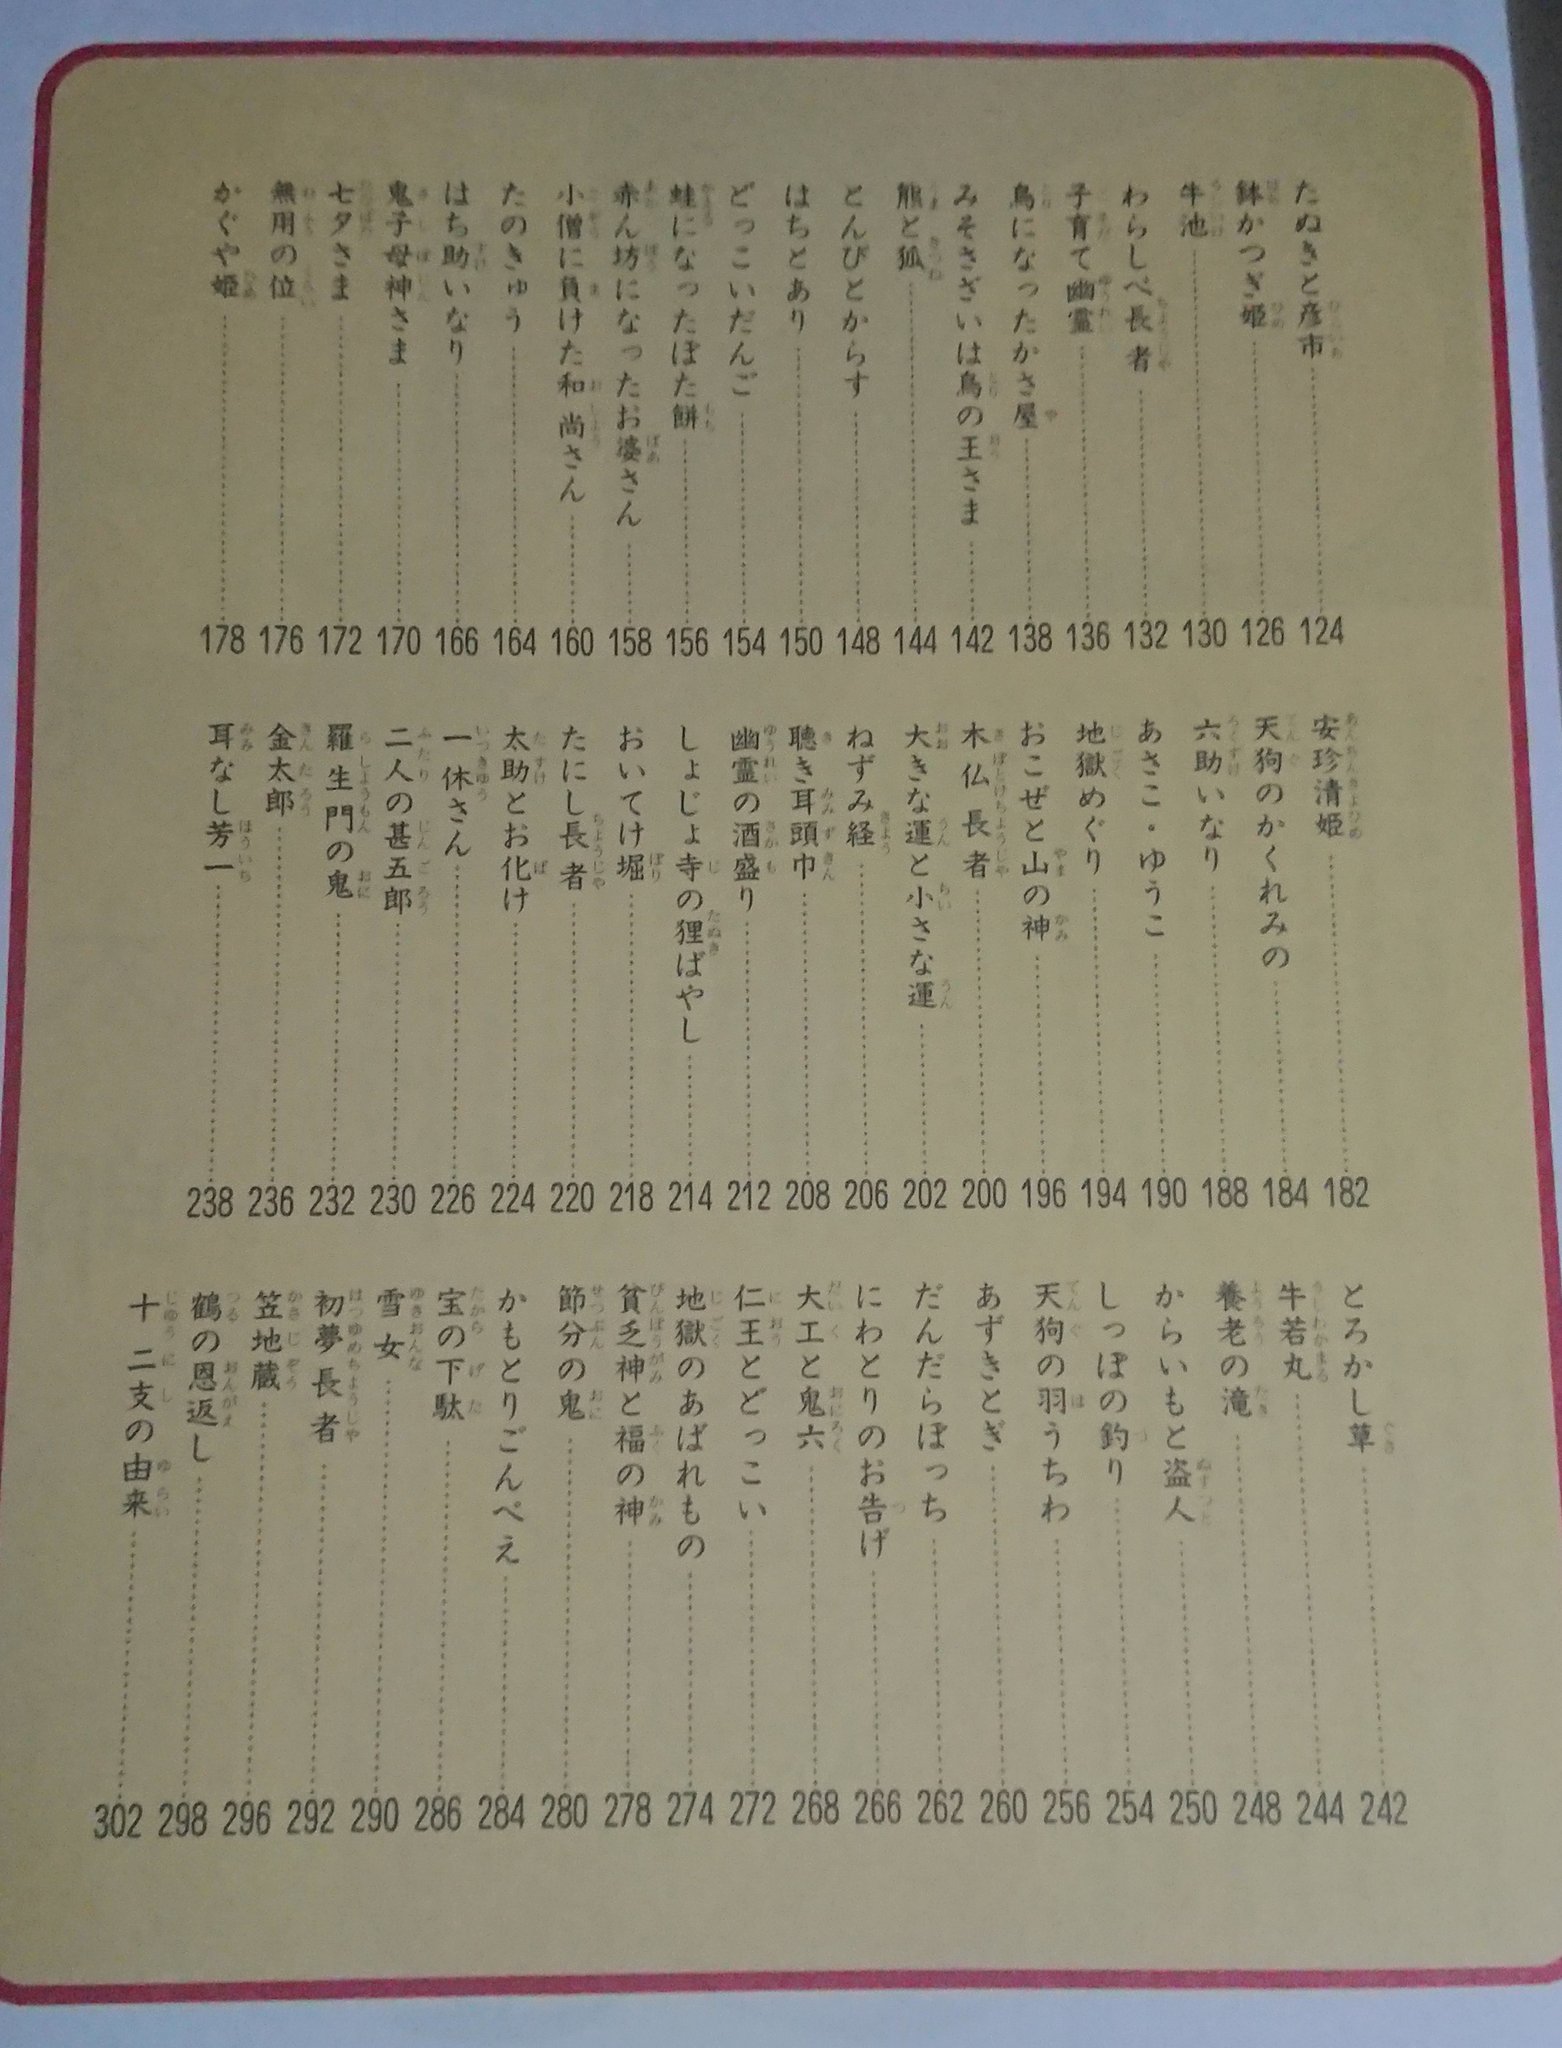 たぬきと彦市 124
鉢かつぎ姫 126
牛池 130
わらしべ長者 132
子育て幽霊 136
鳥になったかさ屋 138
みそさざいは鳥の王さま 142
熊と狐 144
とんびとからす 148
はちとあり 150
どっこいだんご 154
蛙になったぼた餅 156
赤ん坊になったお婆さん 158
小僧に負けた和尚さん 160
たのきゅう 164
はち助いなり 166
鬼子母神さま 170
七夕さま 172
無用の位 176
かぐや姫 178
安珍清姫 182
天狗のかくれみの 184
六助いなり 188
あさこ・ゆうこ 190
地獄めぐり 194
おこぜと山の神 196
木仏長者 200
大きな運と小さな運 202
ねずみ経 206
聴き耳頭巾 208
幽霊の酒盛り 212
しょじょ寺の狸ばやし 214
おいてけ堀 218
たにし長者 220
太助とお化け 224
一休さん 226
二人の甚五郎 230
羅生門の鬼 232
金太郎 236
耳なし芳一 238
とろかし草 242
牛若丸 244
養老の滝 248
からいもと盗人 250
しっぽの釣り 254
天狗の羽うちわ 256
あずきとぎ 260
だんだらぼっち 262
にわとりのお告げ 266
大工と鬼六 268
仁王とどっこい 272
地獄のあばれもの 274
貧乏神と福の神 278
節分の鬼 280
かもとりごんべえ 284
宝の下駄 286
雪女 290
初夢長者 292
笠地蔵 296
鶴の恩返し 298
十二支の由来 302